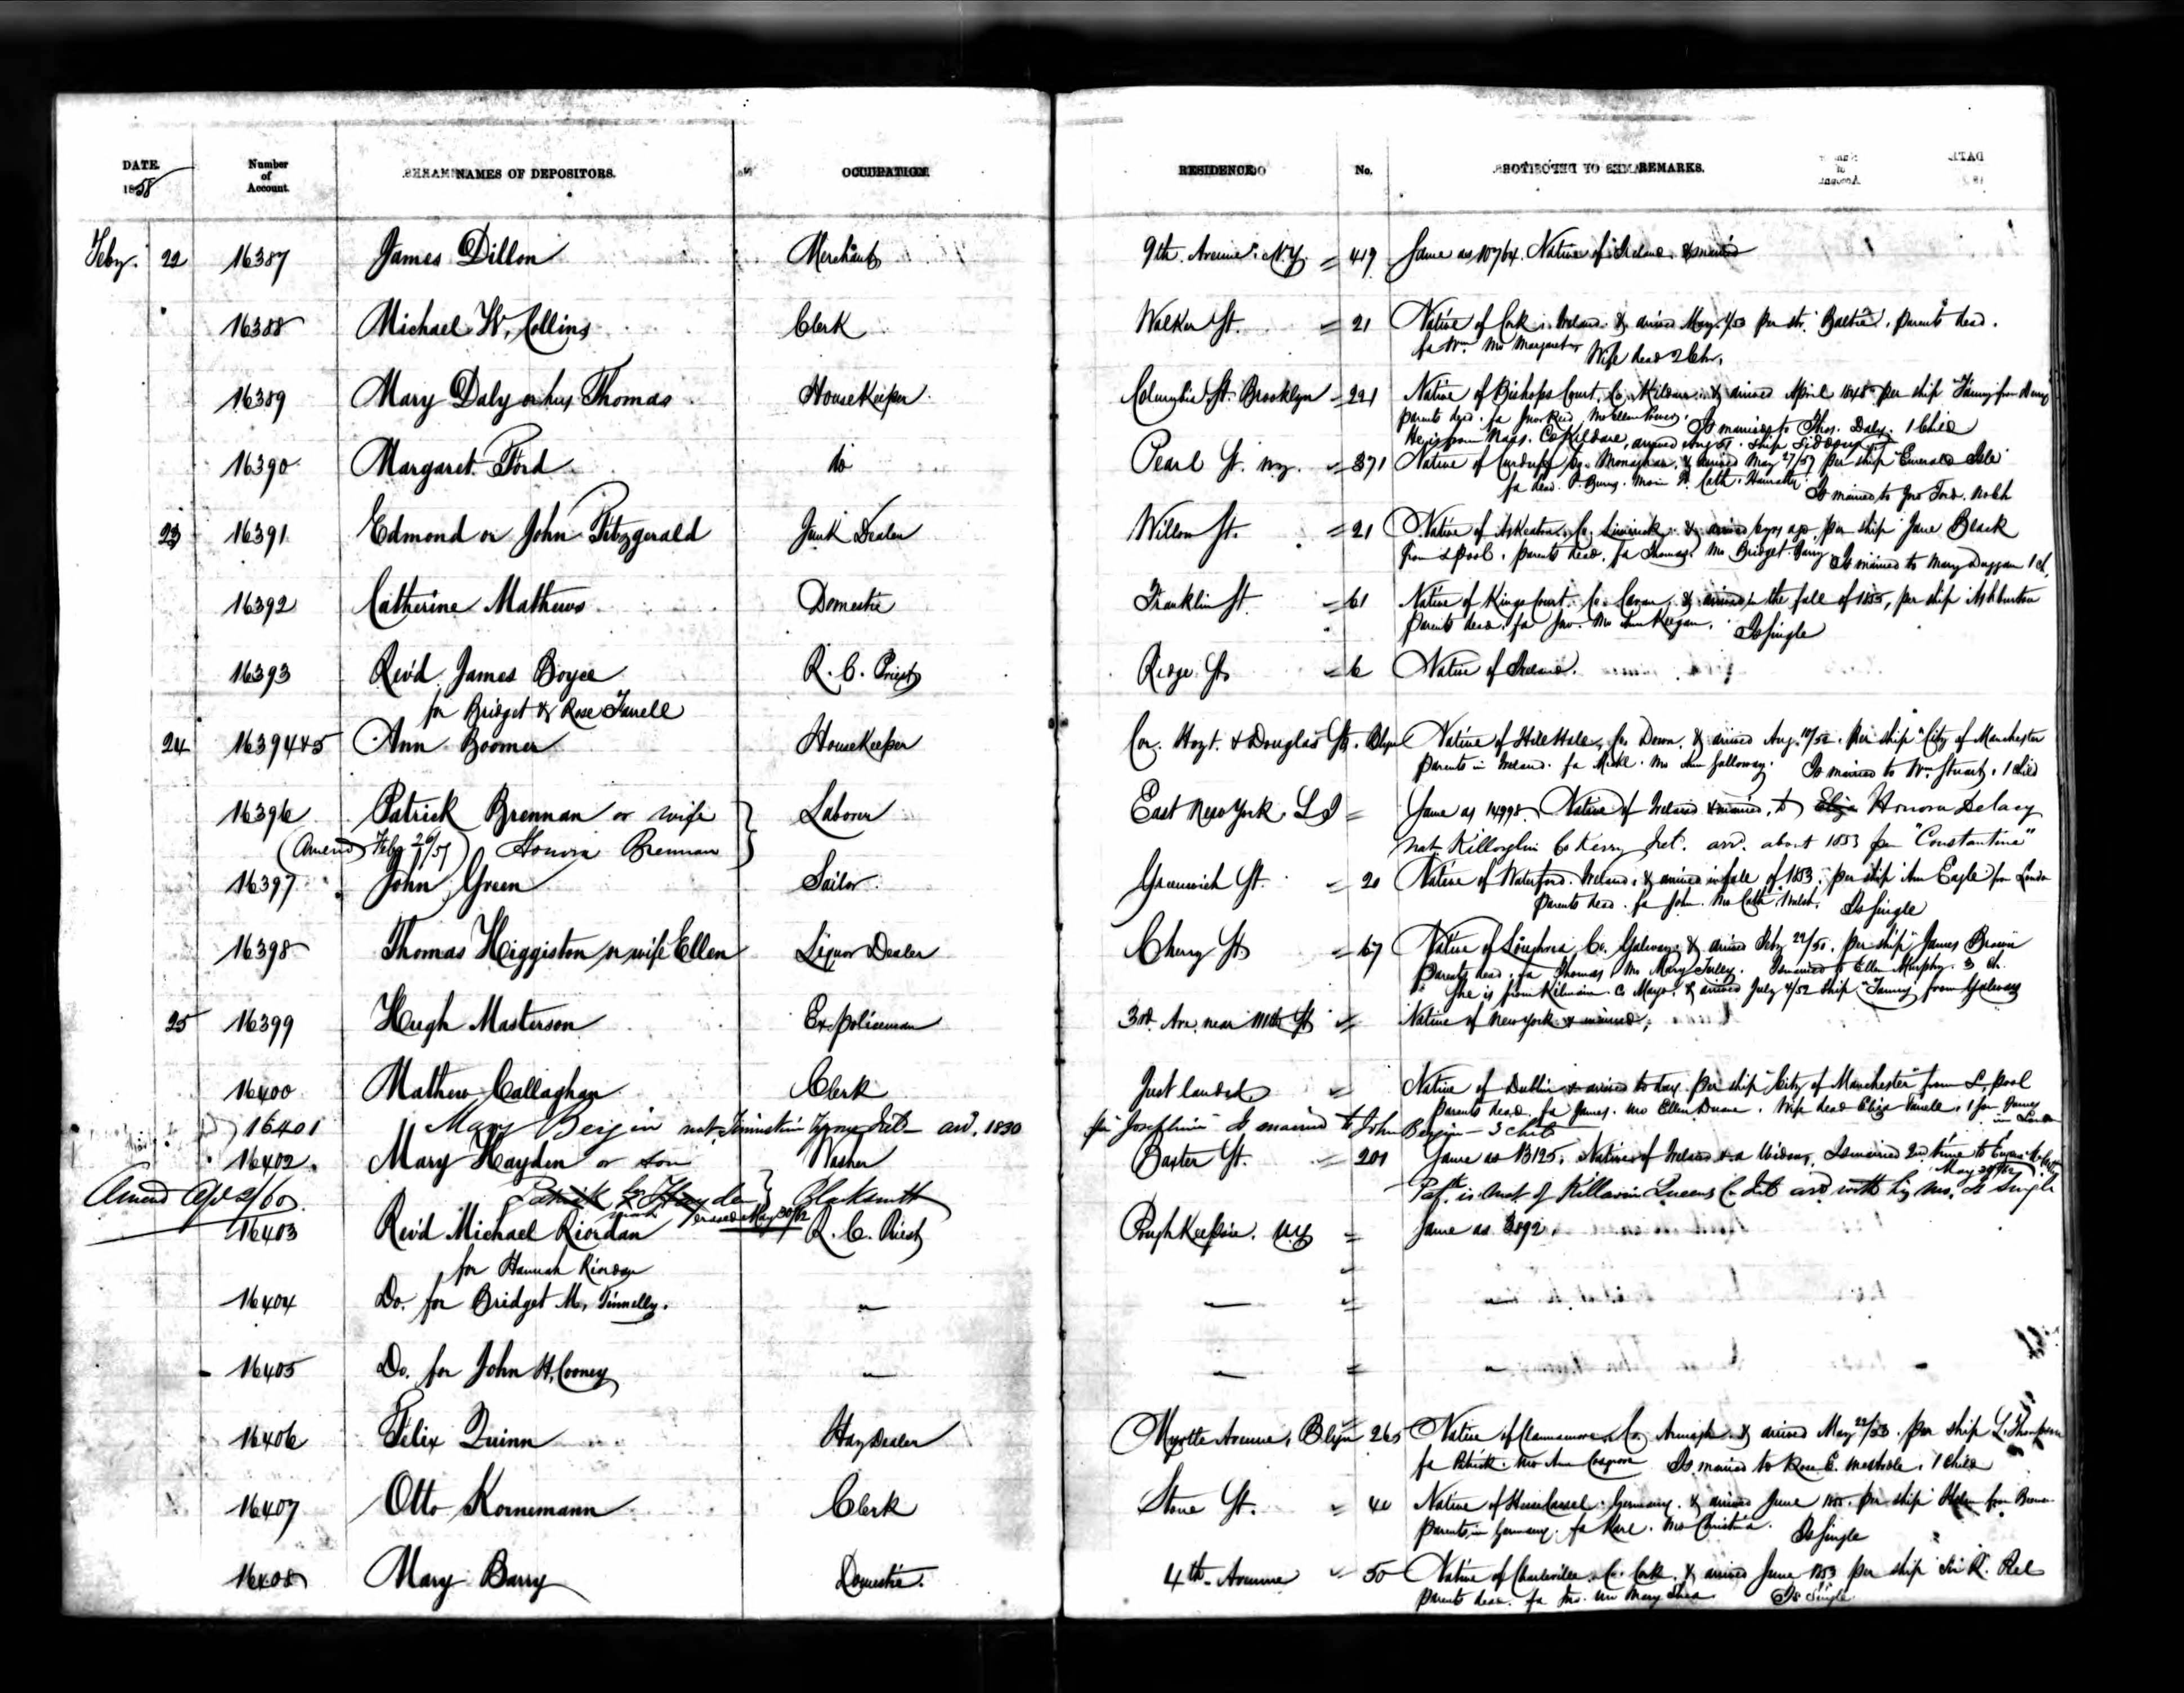 DATE. Number of Account. NAMES OF DEPOSITORS. OCCUPATION. RESIDENCE. No. REMARKS.
1858
Feby. 22 16387 James Dillon Merchant 9th Avenue N.Y. = 419 Same as 10764. Native of Ireland & married
16388 Michael W. Collins Clerk Walker St. = 21 Native of Cork, Ireland & arrived May 4/53 per str. Baltic. parents dead.
fa Wm. Mo Margaret Wife dead 2 Chn.
16389 Mary Daly or hus Thomas HouseKeeper Columbia St. Brooklyn = 221 Native of Bishops Court, Co. Kildare & arrived April 1848 per ship "Fanny from Derry"
parents dead. fa Jno Reid Mo Ellen Is married to Thos. Daly. 1 Child
He is from Naas, Co Kildare, arrived Aug 51. ship
16390 Margaret Ford do Pearl St. ny. = 371 Native of Co. Monaghan, & arrived May 27/57 per ship "Emerald Isle"
fa dead P. Burns. Mo in N.Y. Cath. Hanratty Is married to Jno Ford. no ch
23 16391 Edmond or John Fitzgerald Junk Dealer Willow St. = 21 Native of Askeaton, Co. Limerick & arrived 6 yrs ago, per ship Jane Black
from L pool. parents dead. fa Thomas. Mo Bridget Is married to Mary Duggan 1 ch,
16392 Catherine Mathews Domestic Franklin St. = 61 Native of Kings Court, Co. Cavan, & arrived in the fall of 1855, per ship Ashburton
parents dead. fa Jno. Mo Ann Keegan. Is Single
16393 Rev'd. James Boyce R. C. Priest Ridge St. = 6 Native of Ireland.
for Bridget & Rose Farrell
24 16394&5 Ann Boomer HouseKeeper Cor. Hoyt & Douglas Sts. Blyn Native of Hill Hall, Co. Down, & arrived Aug. 10/52. Per ship "City of Manchester
parents in Ireland. fa Michl. Mo Ann Galloway. Is married to Wm. Stuart, 1 Child
16396 Patrick Brennan or wife Laborer East New York, L I = Same as 14998. Native of Ireland & married, to Eliza Honora Delacy
(Amend Feby 26/57) Honora Brennan nat. Killorglin Co Kerry Irel. arr. about 1853 per "Constantine"
16397 John Green Sailor Greenwich St. = 20 Native of Waterford, Ireland, & arrived in fall of 1853, per ship Am Eagle from London
parents dead. fa John. Mo Cath. Walsh. Is Single
16398 Thomas Higgiston or wife Ellen Liquor Dealer Cherry St. = 67 Native of Loughrea Co. Galway & arrived Feby 22/50. per ship "James Brown
Parents dead. fa Thomas Mo Mary Tuley. Is married to Ellen Murphy. 3 ch.
She is from Kilmain Co Mayo, & arrived July 4/52 ship "Fanny" from Galway
25 16399 Hugh Masterson Ex policeman 3rd. Ave. near 111th St = Native of New York & married.
16400 Mathew Callaghan Clerk Just landed = Native of Dublin & arrived to day per ship "City of Manchester" from L. pool
parents dead. fa James. Mo Ellen Duane. Wife dead Eliza Farrell, 1 son James
in London
16401 Mary Bergin nat. Tyrone Irel- arr. 1830 per Josephine - Is married to John Bergin - 3 chil
16402 Mary Hayden or son Washer Baxter St. = 201 Same as 13125. Native of Ireland & a Widow, Is married 2nd time to
May 30/62
Amend Apl 2/60. Patrick Hayden Blaksmith Pat. is nat of Killavin Queens Co Irel arr with his mo. Is Single
erased May 30/62
16403 Rev'd Michael Riordan R. C. Priest PoughKeepsie. N.Y = Same as 3892.
for Hannah Riordan
16404 Do. for Bridget M, Finnelly. " " =
16405 Do. for John H. Cooney " " = "
16406 Felix Quinn Hay Dealer Myrtle Avenue, Blyn 265 Native of Co. Armagh & arrived May 22/53. per ship L. Thompson
fa Patrick. Mo Ann Cosgrove Is married to Rose E. 1 Child
16407 Otto Kornemann Clerk Stone St. = 40 Native of Hesse Cassel, Germany, & arrived June 1855. per ship from Bremen
parents in Germany. fa Karl. Mo Christina. Is Single
16408 Mary Barry Domestic. 4th Avenue = 50 Native of Charleville, Co. Cork. & arrived June 1853 per ship Sir R. Peel
parents dead. fa Mo Mary Shea. Is Single